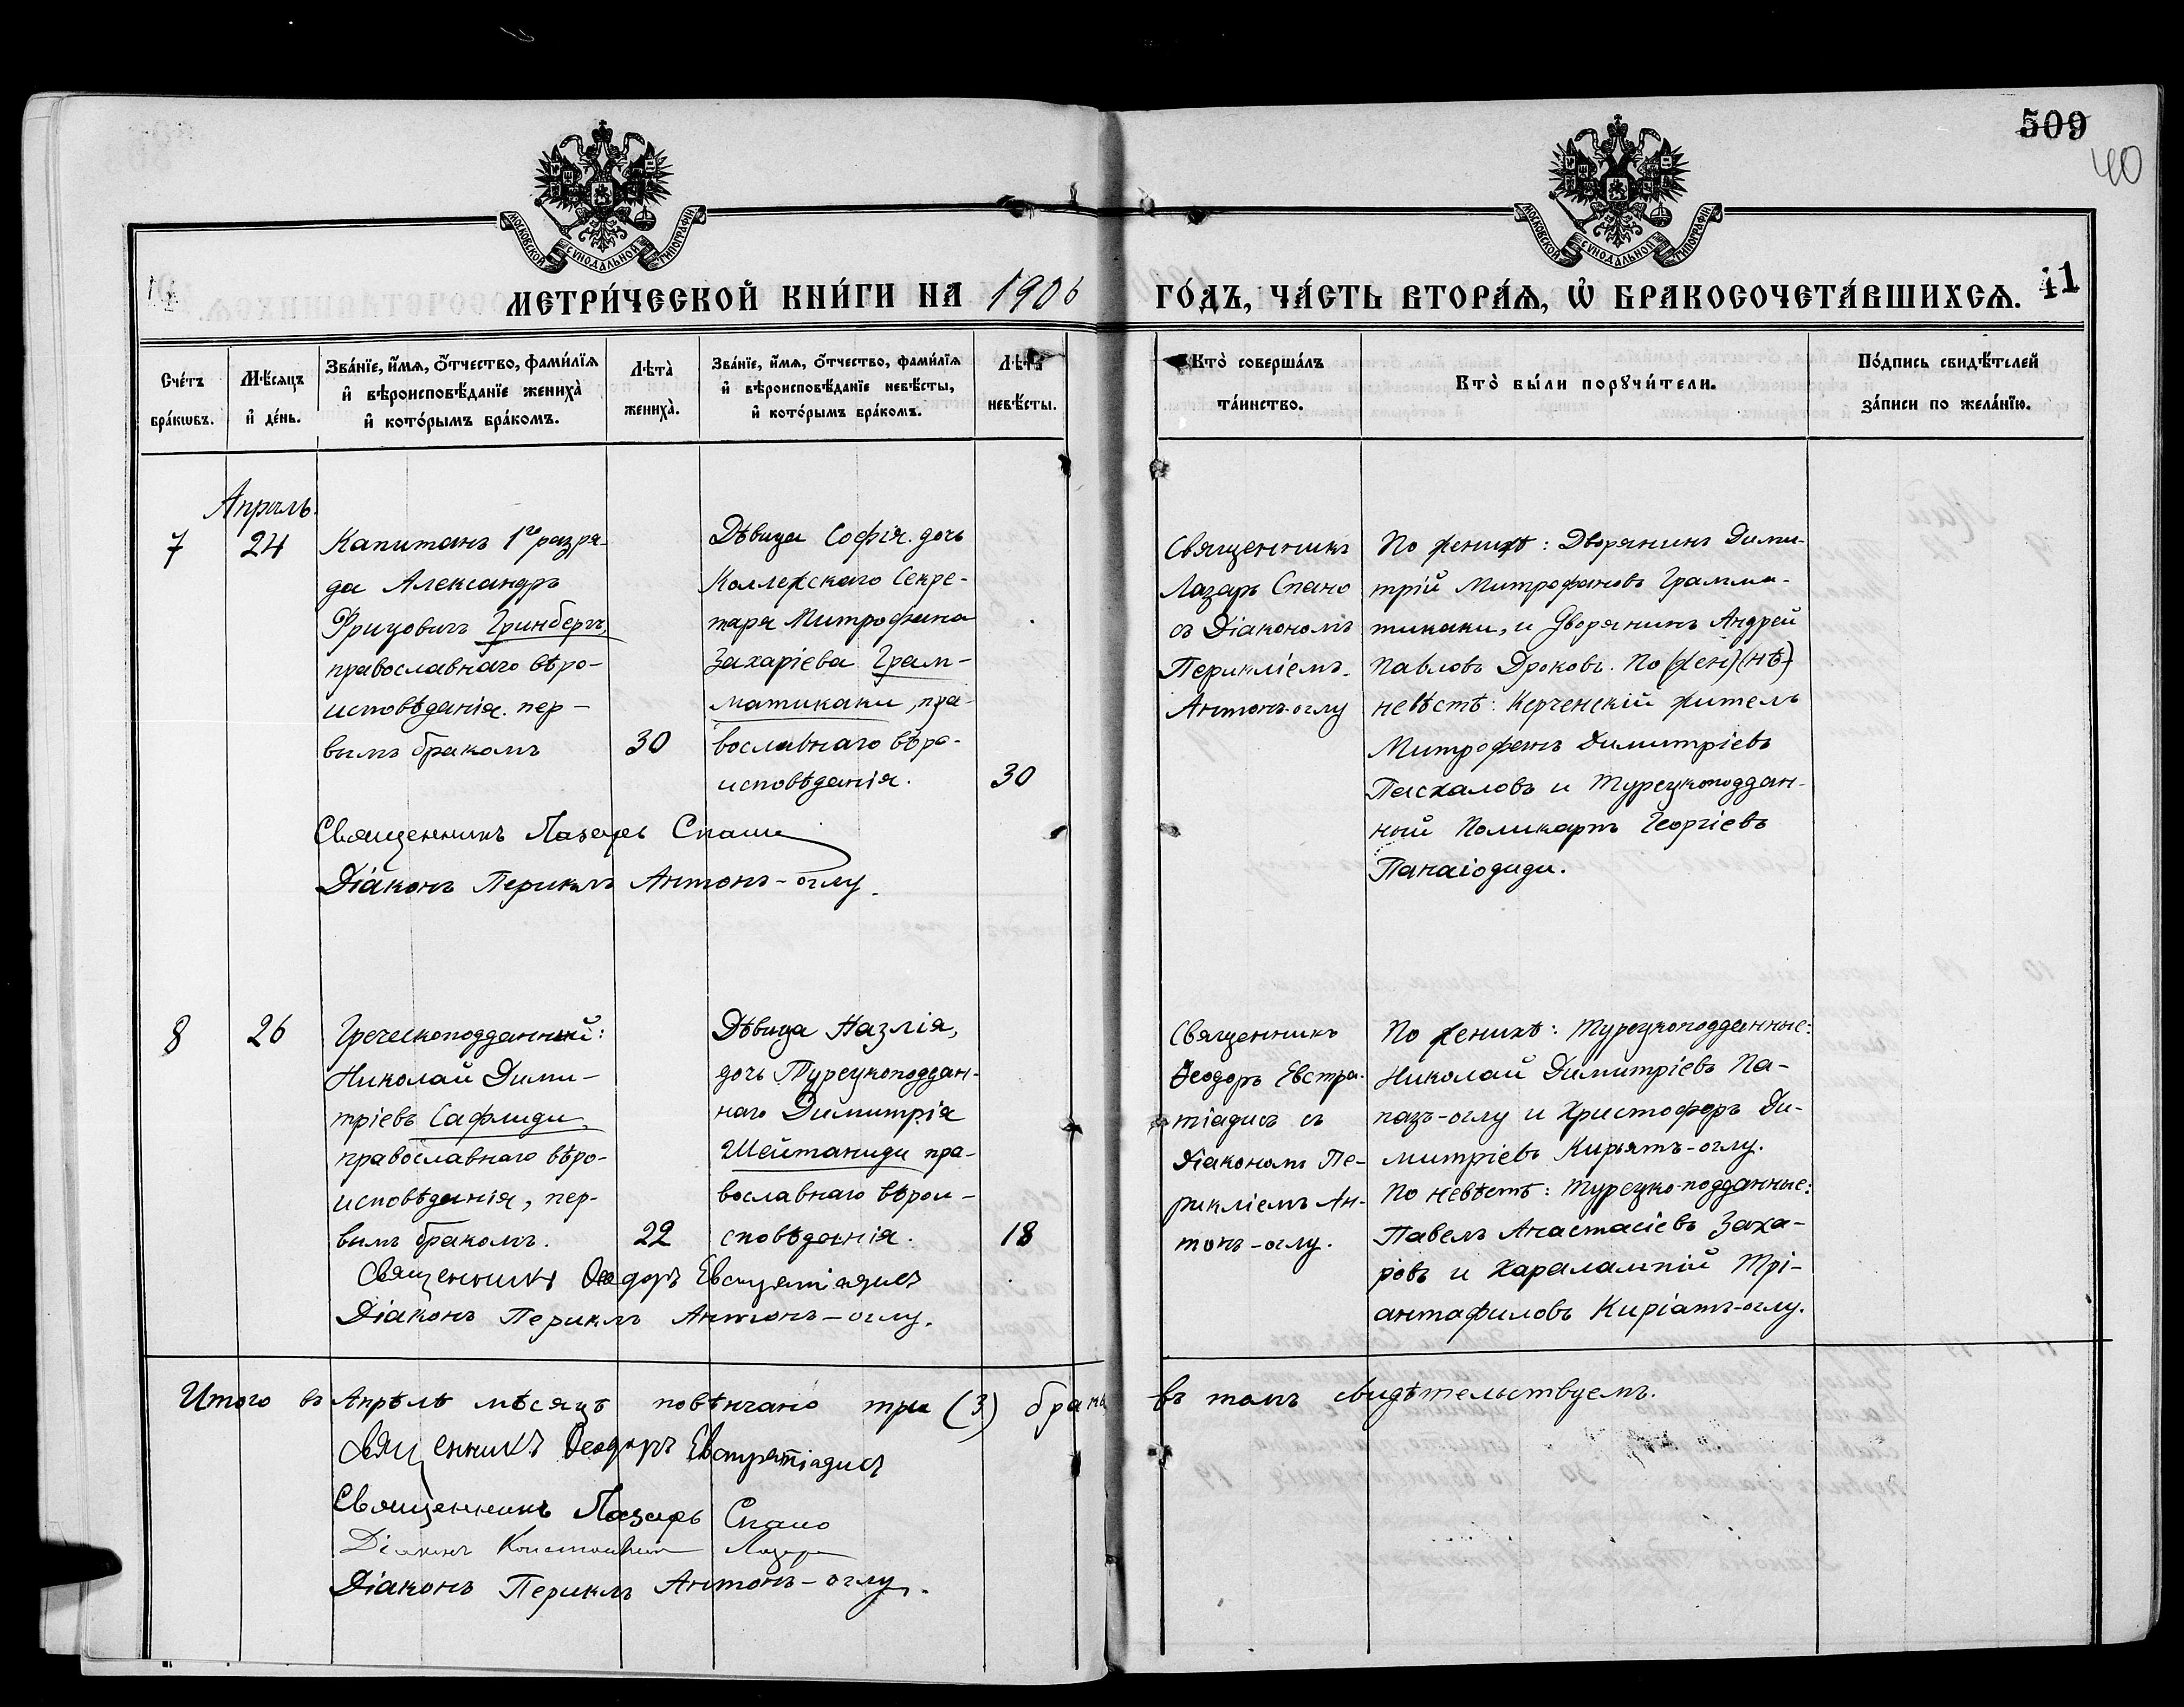 509
40
МОСКОВСКОЙ СѴНОДАЛЬНОЙ ТИПОГРАФІИ
МОСКОВСКОЙ СѴНОДАЛЬНОЙ ТИПОГРАФІИ
МЕТРИ́ЧЕСКОЙ КНИ́ГИ НА 1906 ГО́ДЪ, ЧА́СТЬ ВТОРА́Ѧ, Ѡ҆ БРАКОСОЧЕТА́ВШИХСѦ. 41
Сче́тъ бра́кѡвъ.
Мѣ́сѧцъ и҆ де́нь.
Зва́нїе, и҆́мѧ, ѻ҆́тчество, фами́лїѧ
и҆ вѣроисповѣ́данїе женихà
и҆ кото́рымъ бра́комъ.
Лѣ́та женихà.
Зва́нїе, и҆́мѧ, ѻ҆́тчество, фами́лїѧ
и҆ вѣроисповѣ́данїе невѣ́сты,
и҆ кото́рымъ бра́комъ.
Лѣ́та невѣ́сты.
Кто̀ соверша́лъ
та́инство.
Кто̀ бы́ли порꙋчи́тели.
По́дпись свидѣ́телей
за́писи по жела́нїю.
Апрѣль.
7
24
Капитанъ 1го разря-
да Александръ
Фрицовичъ Гринбергъ,
православнаго вѣро-
исповѣданія. пер-
вымъ бракомъ
30
Дѣвица Софія. дочь
Коллежскаго Секре-
таря Митрофана
Захаріева Грам-
матикаки, пра-
вославнаго вѣро-
исповѣданія.
30
Священникъ
Лазарь Спано
съ Діакономъ
Перикліемъ
Антонъ-оглу
По женихѣ: Дворянинъ Дими-
трій Митрофановъ Грамма-
тикаки, и Дворянинъ Андрей
Павловъ Дроковъ. По (жен) (нѣ)
невѣстѣ: Керченскій житель
Митрофанъ Димитріевъ
Пасхаловъ и Турецкоподдан-
ный Поликарпъ Георгіевъ
Панаіодиди.
Священникъ Лазарь Спано
Діаконъ Периклъ Антонъ-оглу.
8
26
Греческоподданный:
Николай Дими-
тріевъ Сафлиди,
православнаго вѣро-
исповѣданія, пер-
вымъ бракомъ.
22
Дѣвица Назлія,
дочь Турецкоподдан-
наго Димитрія
Шейтаниди пра-
вославнаго вѣрои-
сповѣданія.
18
Священникъ
Ѳеодоръ Евстра-
тіадисъ съ
Діакономъ Пе-
рикліемъ Ан-
тонъ-оглу.
По женихѣ: Турецкоподданные:
Николай Димитріевъ Па-
пазъ-оглу и Христофоръ Ди-
митріевъ Кирьятъ-оглу.
По невѣстѣ: Турецко-подданные:
Павелъ Анастасіевъ Заха-
ровъ и Харалампій Трі-
антафиловъ Киріатъ-оглу.
Священникъ Ѳеодоръ Евстратіадисъ
Діаконъ Периклъ Антонъ-оглу.
Итого въ Апрѣлѣ мѣсяцѣ повѣнчано три (3) брака въ томъ свидѣтельствуемъ.
Священникъ Ѳеодоръ Евстратіадисъ
Священникъ Лазарь Спано
Діаконъ Константинъ
Діаконъ Периклъ Антонъ-оглу.